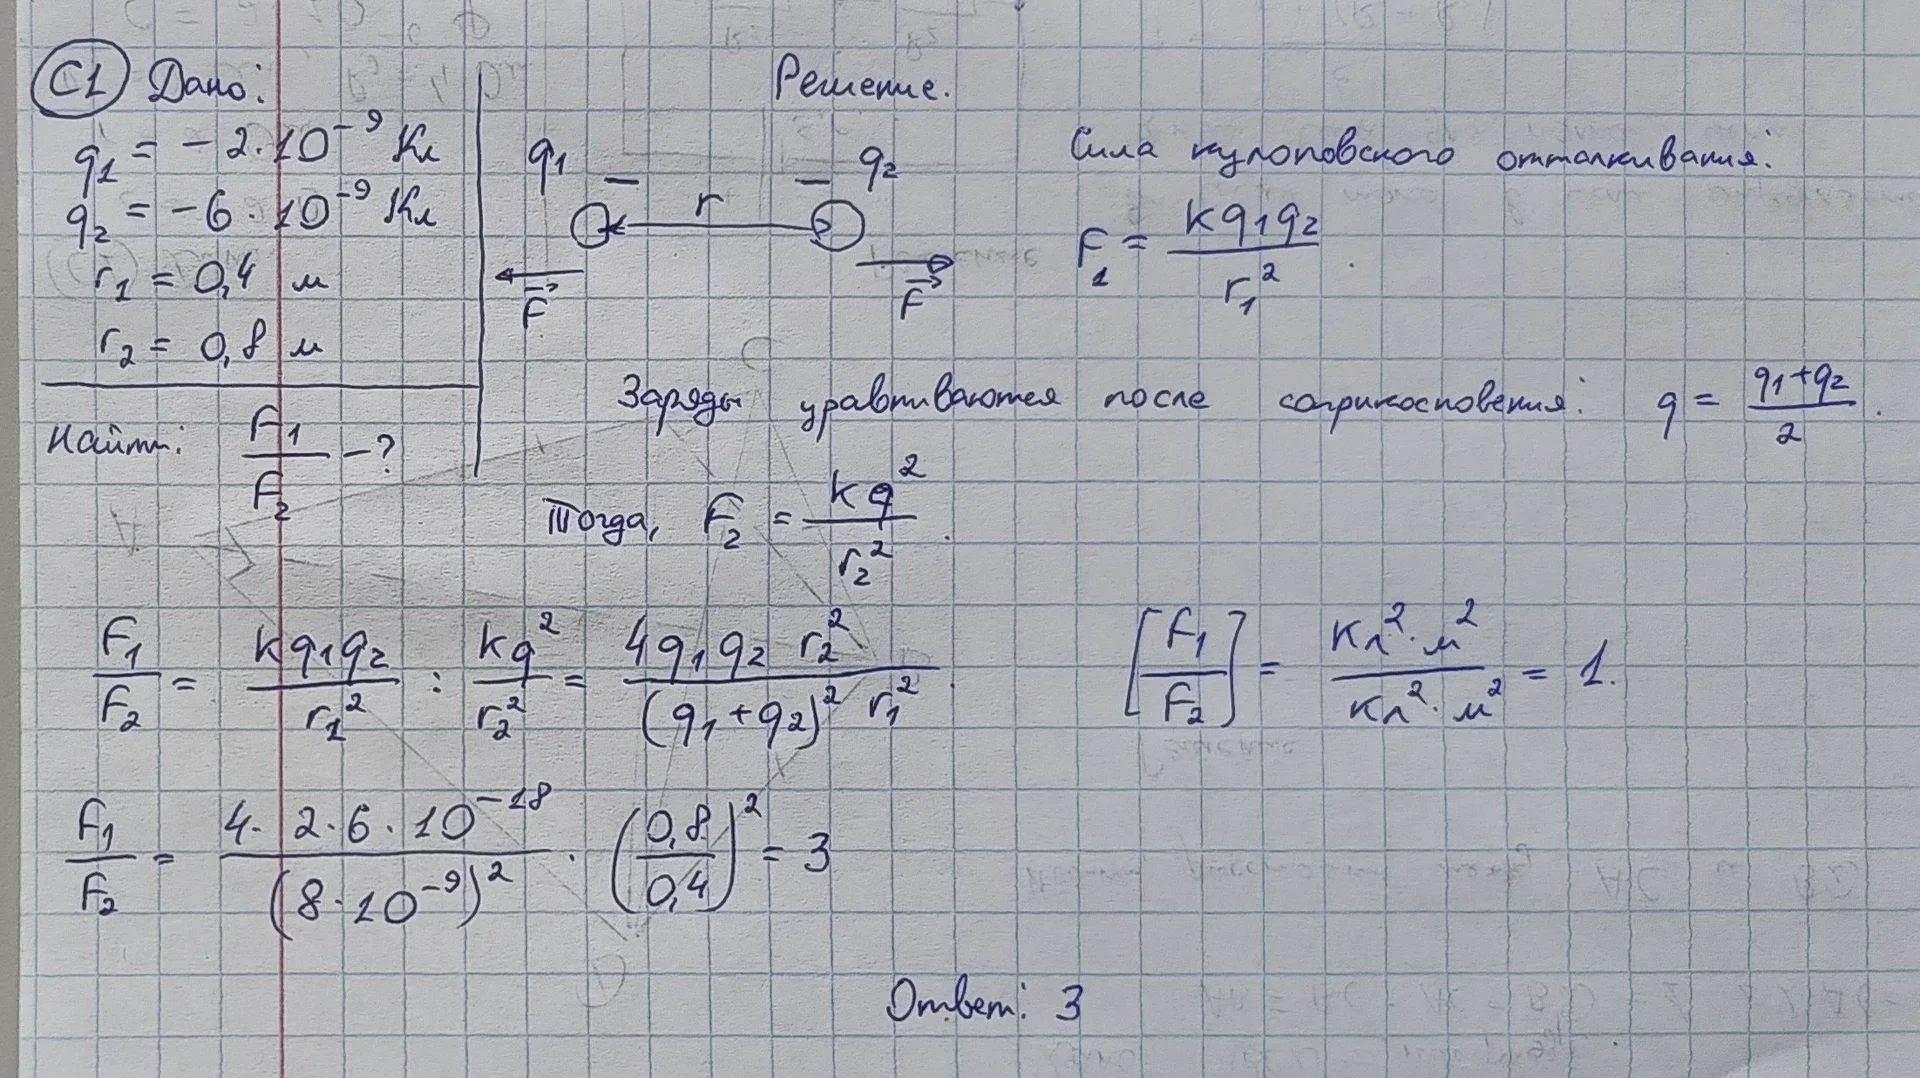 С1 Дано:
q₁ = -2·10⁻⁹ Кл
q₂ = -6·10⁻⁹ Кл
r₁ = 0,4 м
r₂ = 0,8 м
Найти: F₁/F₂ - ?
Решение.
q₁ - r - q₂
F⃗ F⃗
Сила кулоповского отталкивания:
F₁ = kq₁q₂/r₁².
Заряды уравтиваются после соприкосновения: q = (q₁+q₂)/2.
Тогда, F₂ = kq²/r₂².
F₁/F₂ = kq₁q₂/r₁² : kq²/r₂² = 4q₁q₂ r₂²/(q₁+q₂)² r₁².
[F₁/F₂] = Кл²·м²/Кл²·м² = 1.
F₁/F₂ = 4·2·6·10⁻¹⁸/(8·10⁻⁹)² · (0,8/0,4)² = 3
Ответ: 3